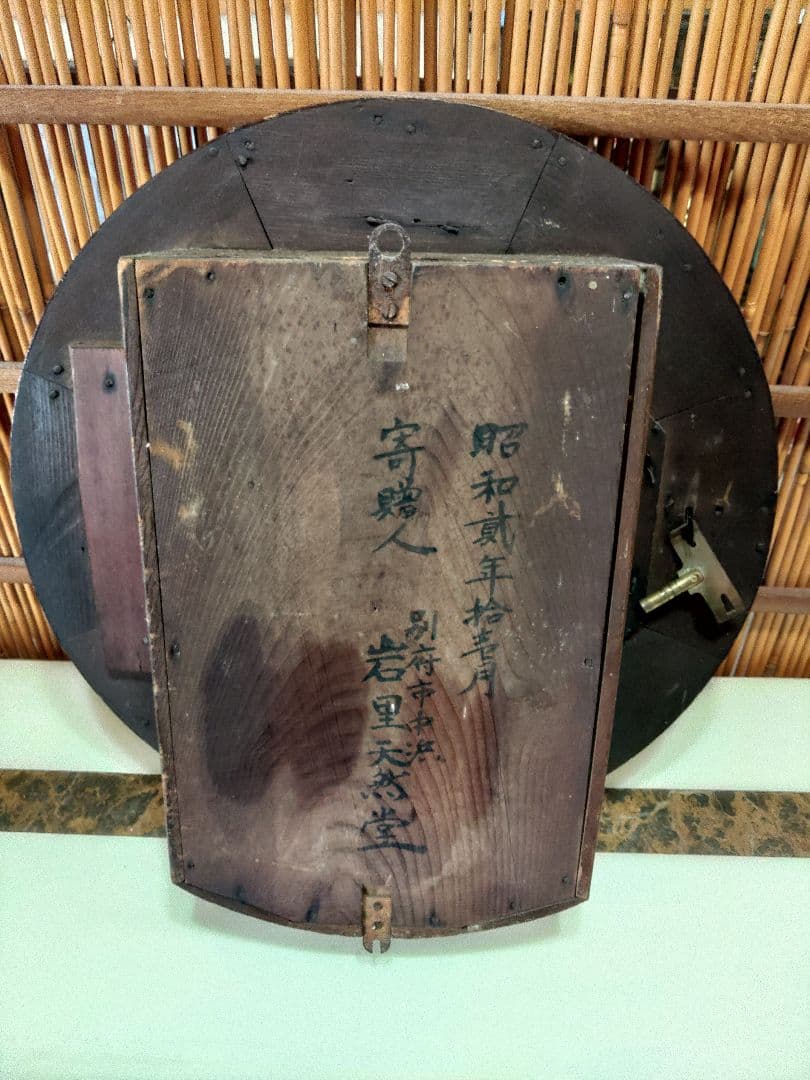 昭和貳年拾壹月
寄贈人
別府市中浜
岩里天然堂